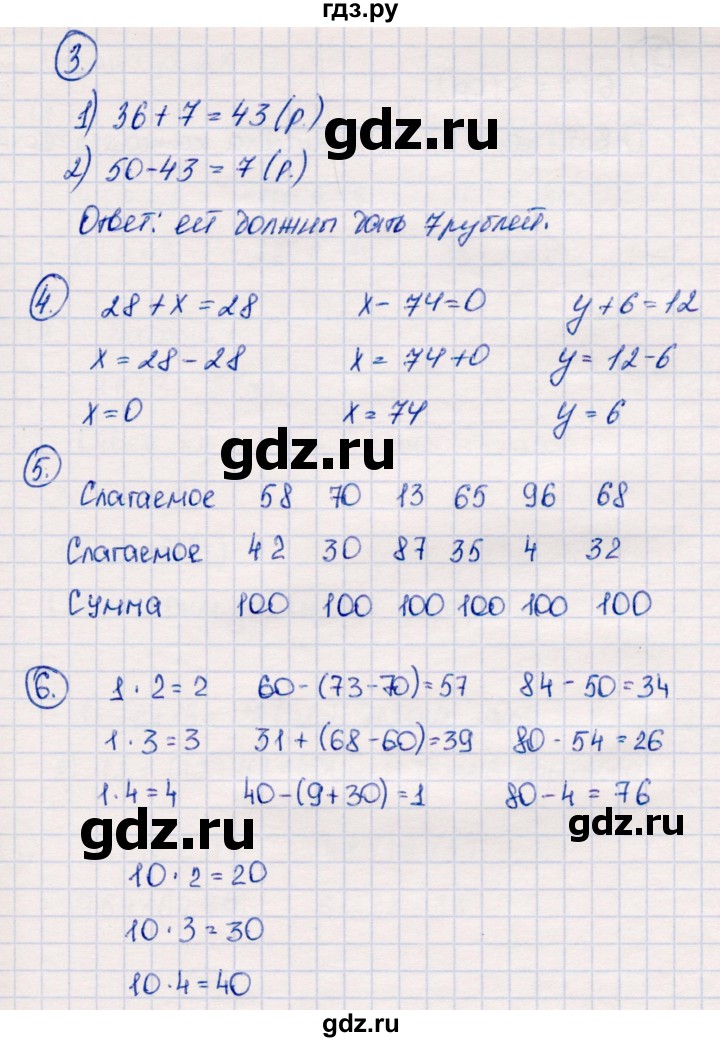 гдз.ру
3.
1) 36 + 7 = 43 (р.)
gdz.ru
2) 50 - 43 = 7 (р.)
Ответ: ей должны дать 7 рублей.
4. 28 + x = 28 x - 74 = 0 y + 6 = 12
x = 28 - 28 x = 74 + 0 y = 12 - 6
x = 0 x = 74 y = 6
gdz.ru
5.
Слагаемое 58 70 13 65 96 68
Слагаемое 42 30 87 35 4 32
Сумма 100 100 100 100 100 100
6. 1 · 2 = 2 60 - (73 - 70) = 57 84 - 50 = 34
1 · 3 = 3 31 + (68 - 60) = 39 80 - 54 = 26
1 · 4 = 4 40 - (9 + 30) = 1 80 - 4 = 76
gdz.ru gdz.ru
10 · 2 = 20
10 · 3 = 30
10 · 4 = 40
gdz.ru